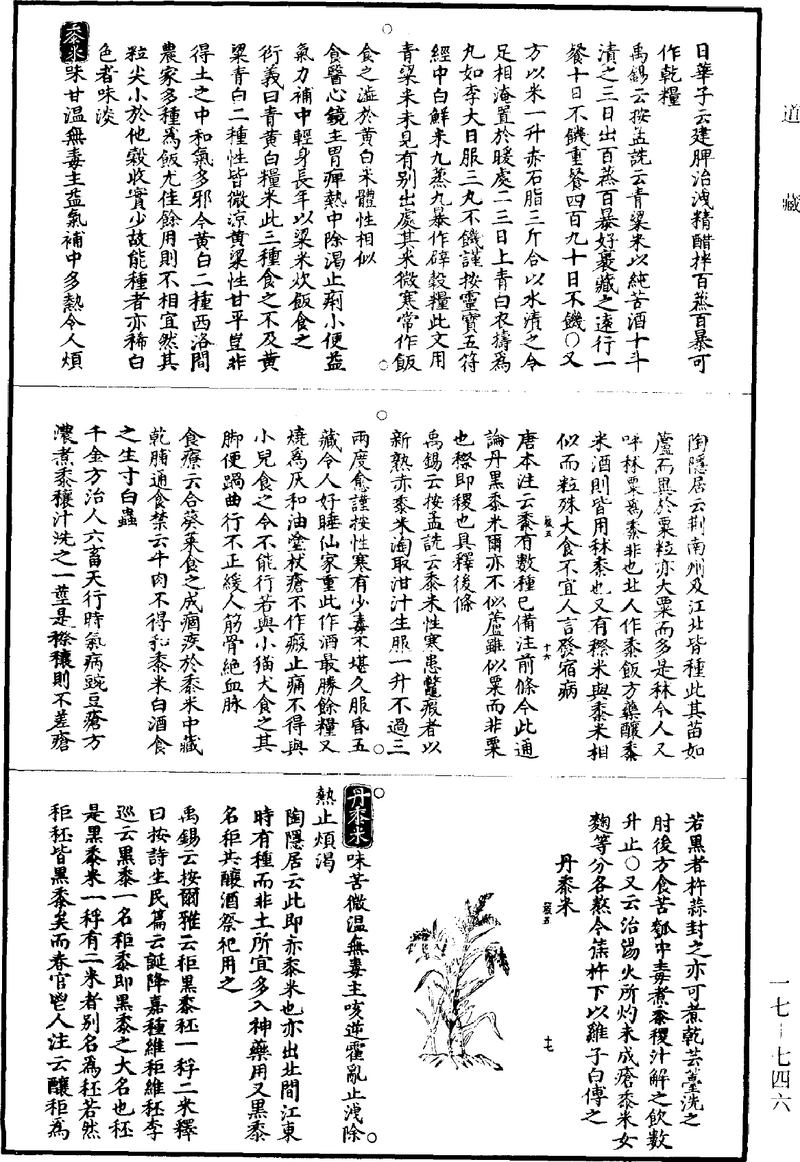 道藏
日華子云建脾治洩精醋拌百蒸百暴可
作乾糧
禹錫云按孟詵云青粱米以純苦酒十斗
漬之三日出百蒸百暴好裹藏之遠行一
餐十日不饑重餐四百九十日不饑○又
方以米一升赤石脂三斤合以水漬之令
足相淹置於暖處二三日上青白衣擣為
丸如李大日服三丸不饑謹按靈寶五符
經中白鮮米九蒸九暴作辟穀糧此文用
青粱米未見有別出處其米微寒常作飯
食之澁於黃白米體性相似
食醫心鏡主胃痺熱中除渴止痢小便益
氣力補中輕身長年以粱米炊飯食之
衍義曰青黃白糧米此三種食之不及黃
粱青白二種性皆微涼黃粱性甘平豈非
得土之中和氣多邪今黃白二種西洛間
農家多種為飯尤佳餘用則不相宜然其
粒尖小於他穀收實少故能種者亦稀白
色者味淡
黍米味甘溫無毒主益氣補中多熱令人煩
陶隱居云荊南州及江北皆種此其苗如
蘆而異於粟粒亦大粟而多是秫令人又
呼秫粟為黍非也北人作黍飯方藥釀黍
米酒則皆用秫黍也又有穄米與黍米相
似而粒殊大食不宜人言發宿病
唐本注云黍有數種已備注前條今此通
論丹黑黍米爾亦不似蘆雖似粟而非粟
也穄即稷也具釋後條
禹錫云按孟詵云黍米性寒患鱉瘕者以
新熟赤黍米淘取泔汁生服一升不過三
兩度愈謹按性寒有少毒不堪久服昏五
藏令人好睡仙家重此作酒最勝餘糧又
燒為灰和油塗杖瘡不作瘢止痛不得與
小兒食之令不能行若與小猫犬食之其
脚便踻曲行不正緩人筋骨絕血脉
食療云合葵菜食之成痼疾於黍米中藏
乾脯通食禁云牛肉不得和黍米白酒食
之生寸白蟲
千金方治人六畜天行時氣病豌豆瘡方
濃煮黍穰汁洗之一莖是穄穰則不差瘡
若黑者杵蒜封之亦可煮乾芸薹洗之
肘後方食苦瓠中毒煮黍穰汁解之飲數
升止○又云治湯火所灼未成瘡黍米女
麴等分各熬令焦杵下以雞子白傅之
丹黍米
丹黍米味苦微溫無毒主咳逆霍亂止洩除
熱止煩渴
陶隱居云此即赤黍米也亦出北間江東
時有種而非土所宜多入神藥用又黑黍
名秬共釀酒祭祀用之
禹錫云按爾雅云秬黑黍秠一稃二米釋
曰按詩生民篇云誕降嘉種維秬維秠李
巡云黑黍一名秬黍即黑黍之大名也秠
是黑黍米一稃有二米者別名為秠若然
秬秠皆黑黍矣而春官鬯人注云釀秬為
一七-七四六